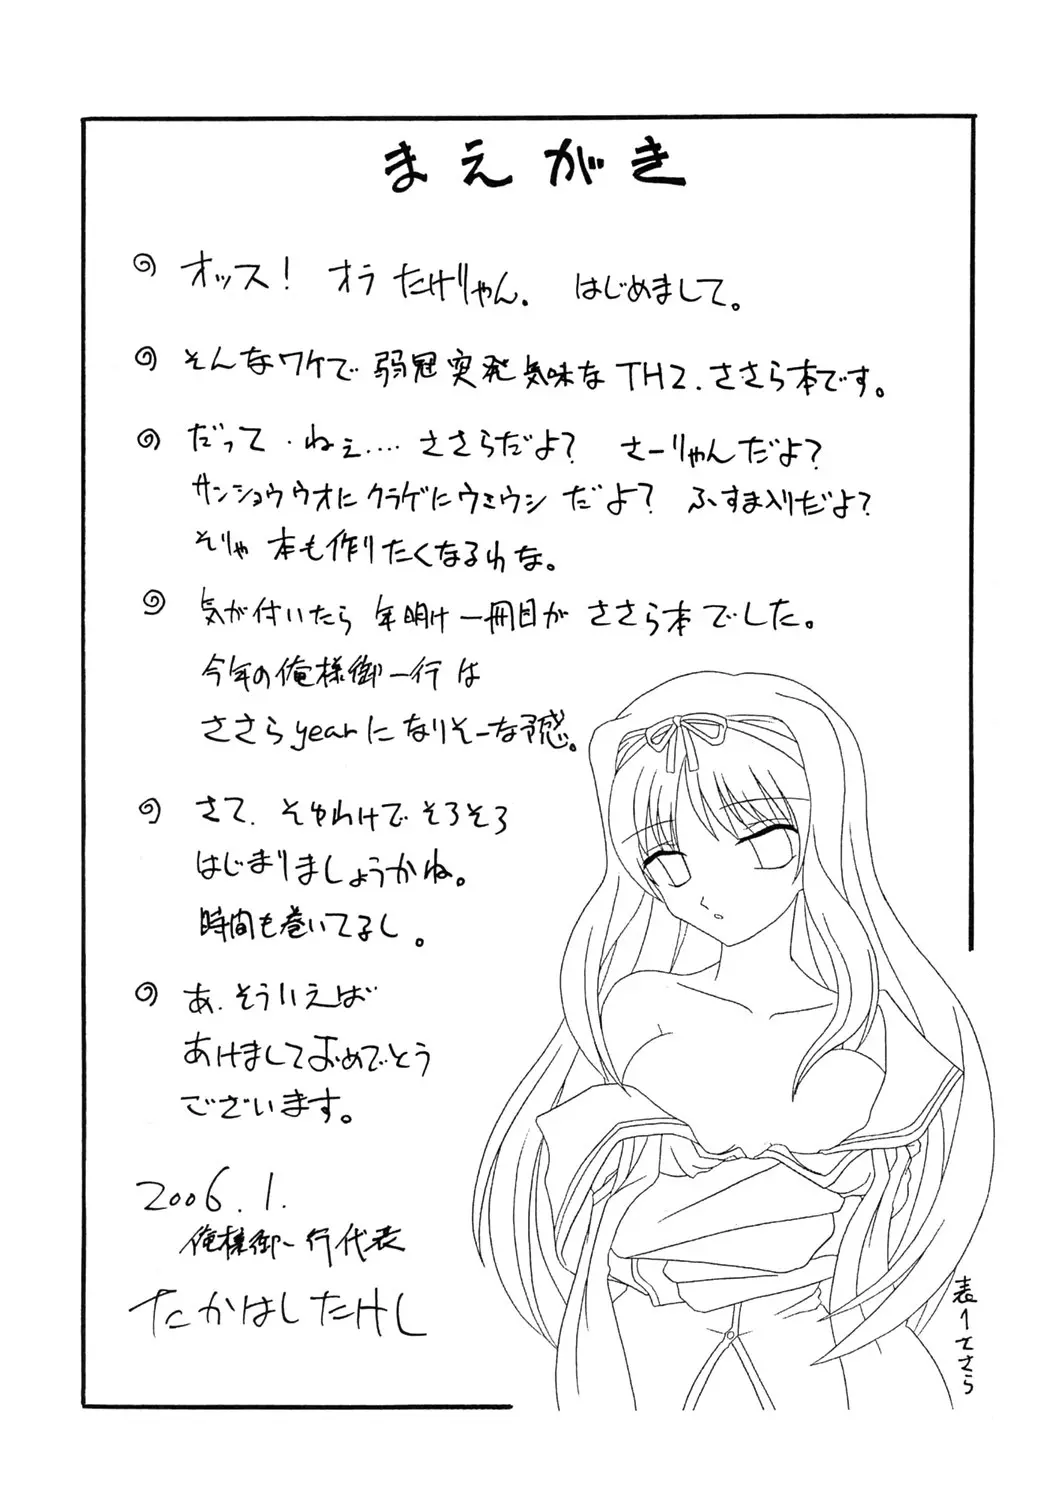 まえがき
オッス! オラ たけりゃん. はじめまして。
そんなワケで 弱冠突発気味な TH2.ささら本です。
だって.ねぇ.... ささらだよ? さーりゃんだよ?
サンショウウオにクラゲにウミウシ だよ? ふすま入りだよ?
そりゃ 本も作りたくなるわな。
気が付いたら 年明け一冊目が ささら本でした。
今年の俺様御一行は
ささらyearになりそーな予感。
さて. そゆわけで そろそろ
はじまりましょうかね。
時間も巻いてるし。
あ.そういえば
あけましておめでとう
ございます。
2006.1.
俺様御一行代表
たかはしたけし